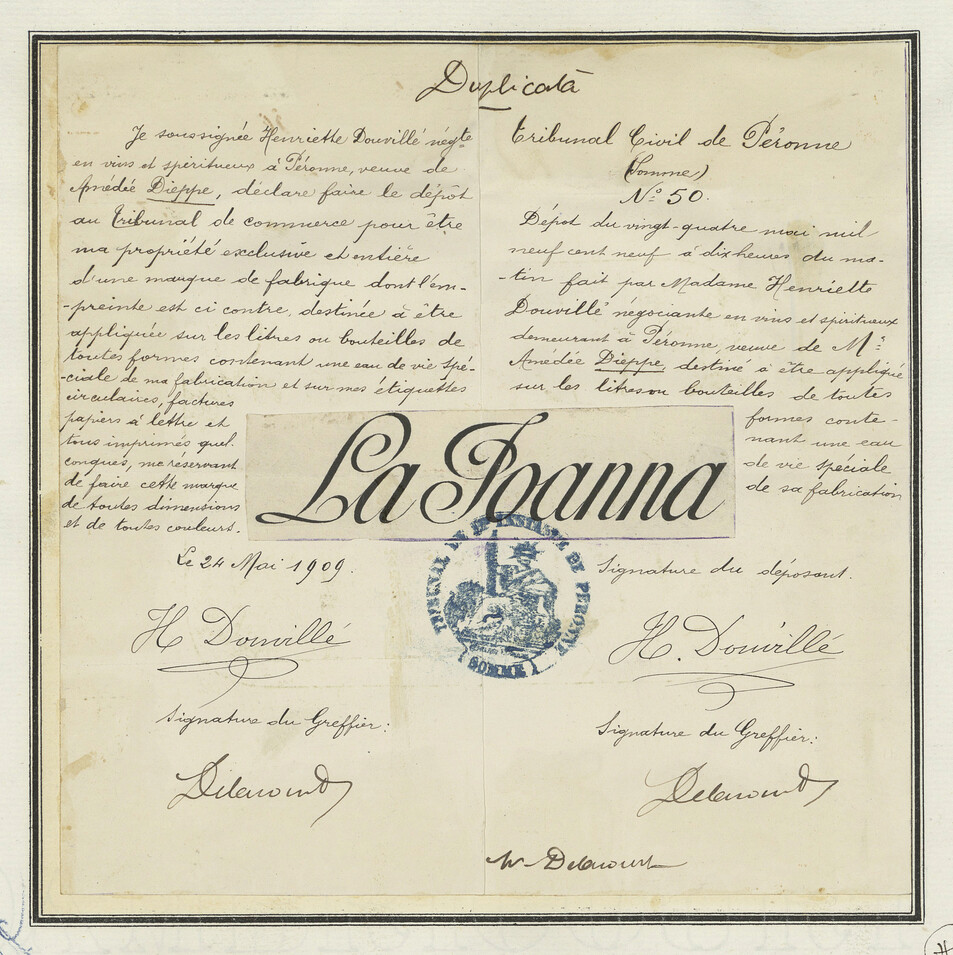 Duplicata
Je soussignée Henriette Douvillé négte
en vins et spiritueux à Péronne, veuve de
Amédée Dieppe, déclare faire le dépôt
au Tribunal de commerce pour être
ma propriété exclusive et entière
d'une marque de fabrique dont l'em-
-preinte est ci contre, destinée à être
appliquée sur les litres ou bouteilles de
toutes formes contenant une eau de vie spé-
-ciale de ma fabrication et sur mes étiquettes
circulaires, factures
papiers à lettre et
tous imprimés quel-
conques, me réservant
de faire cette marque
de toutes dimensions
et de toutes couleurs.
Le 24 Mai 1909.
H Douvillé
Signature du Greffier:
Delacourt
Tribunal Civil de Péronne
(Somme)
No 50.
Dépôt du vingt-quatre mai mil
neuf cent neuf à dix heures du ma-
-tin fait par Madame Henriette
Douvillé négociante en vins et spiritueux
demeurant à Péronne, veuve de Mr
Amédée Dieppe, destiné à être appliqué
sur les litres ou bouteilles de toutes
formes conte-
nant une eau
de vie spéciale
de sa fabrication
La Joanna
TRIBUNAL DE 1re INSTANCE DE PERONNE
(SOMME)
Signature du déposant.
H. Douvillé
Signature du Greffier:
Delacourt
Delacourt